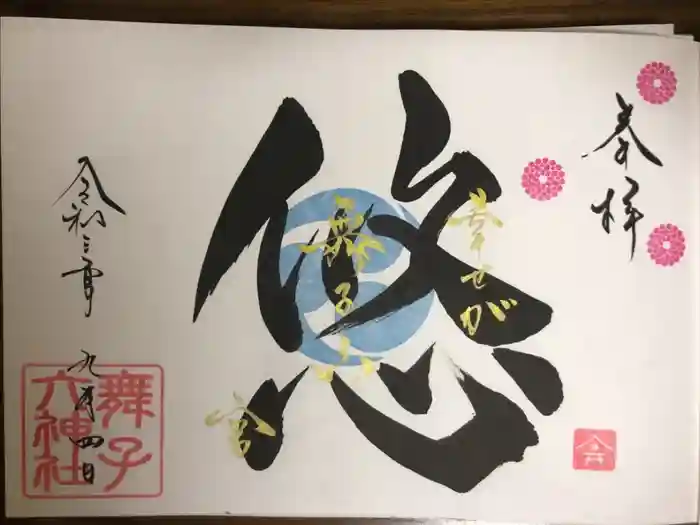 奉拝
悠
幸せが
舞子六
宮
令和三年
九月四日
舞子
六神社